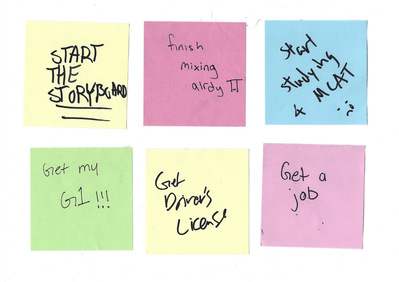 START
THE
STORYBOARD
finish
mixing
alrdy TT
start
studying
4 MCAT
:)
Get my
G1 !!!
Get
Driver's
License
Get a
job